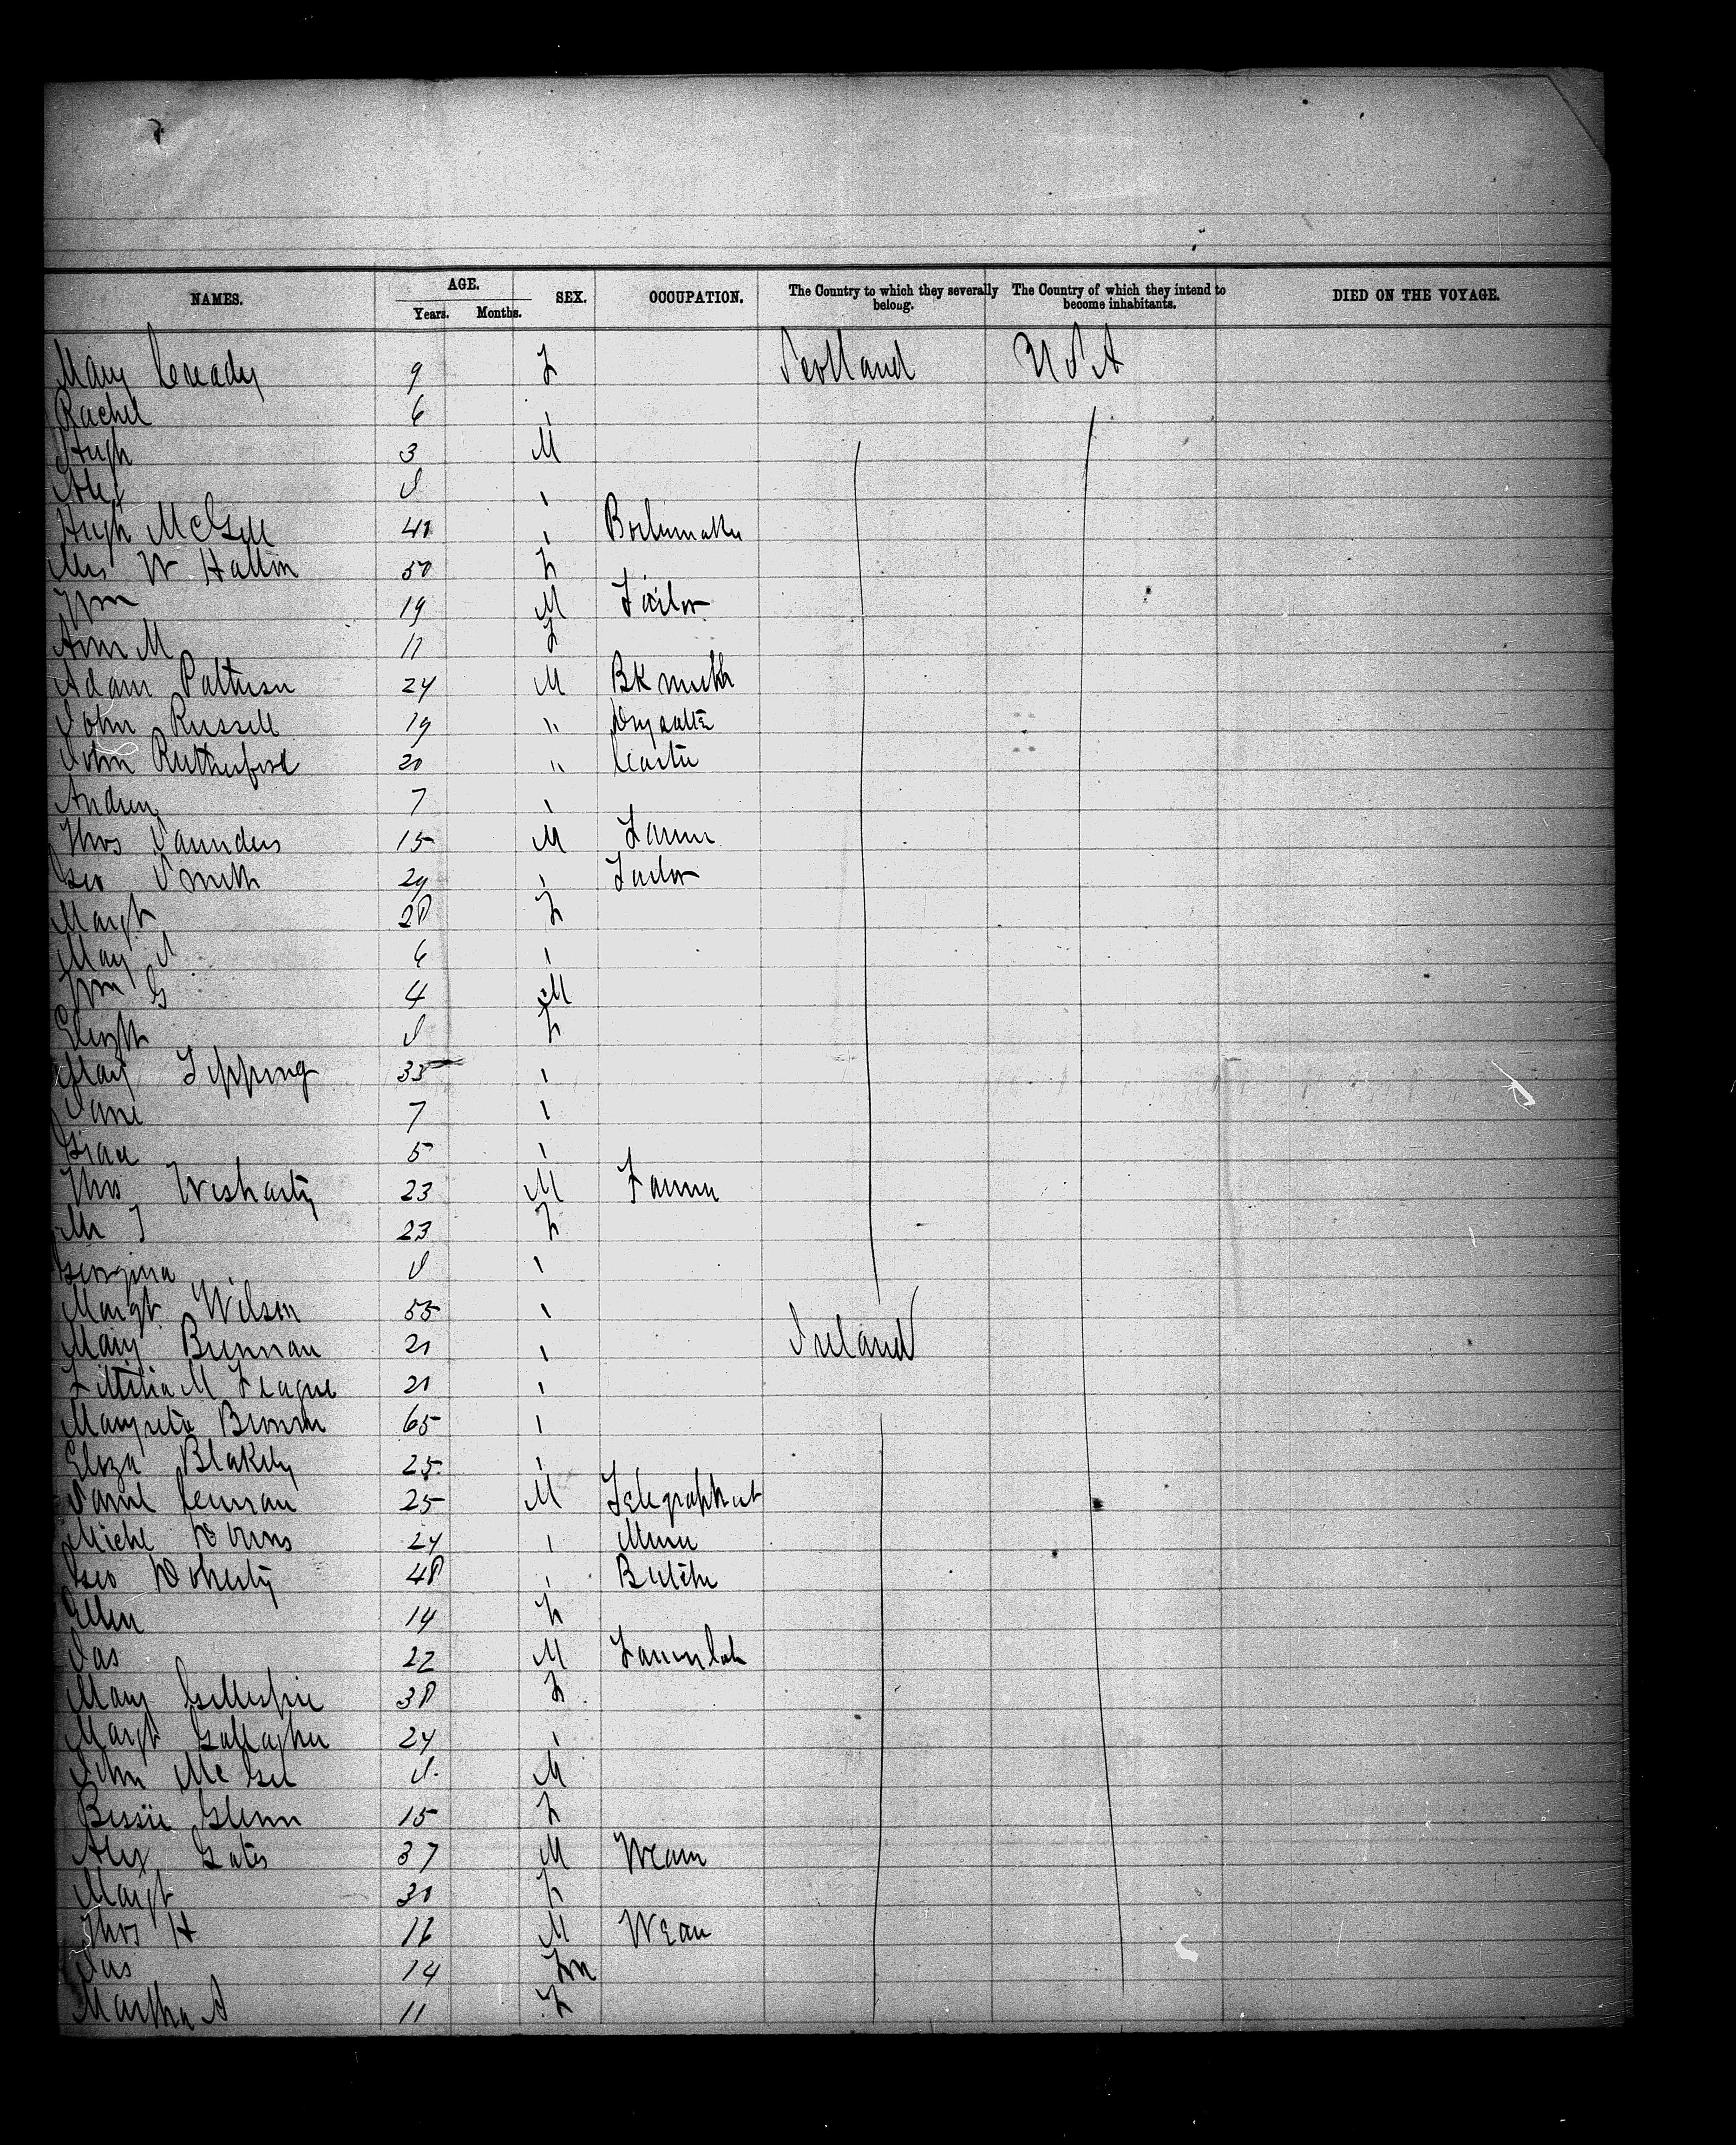 NAMES. AGE. Years. Months. SEX. OCCUPATION. The Country to which they severally belong. The Country of which they intend to become inhabitants. DIED ON THE VOYAGE.
Mary Cready 9 F Scotland U S A
Rachel 6 "
Hugh 3 M
Alex "
Hugh McGill 40 " Boilermaker
Mrs W Hattin 50 F
Wm 19 M Tailor
Ann M 11 F
Adam Patterson 24 M Bk smith
John Russell 19 " Drysalter
John Rutherford 20 " Carter
Andrew 7 "
Thos Saunders 15 M Farmer
Geo Smith 29 " Tailor
Margt 28 F
May 6 "
Wm G 4 M
Elizth F
Mary Tipping 33 "
Jane 7 "
Grace 5 "
Thos 23 M Farmer
23 F
Georgina "
Margt Wilson 55 "
Mary Brennan 20 " Ireland
M League 20 "
Brown 65 "
Eliza Blakely 25 "
25 M Telegraphist
Michl Downs 24 " Miner
Geo Doherty 48 " Butcher
Ellen 14 F
Jas 22 M Farm lab
Mary Gillespie 38 F
Margt Gallagher 24 "
John M
Bessie Glenn 15 F
Alex Gates 37 M Weaver
Margt 30 F
Thos H 16 M Weaver
Jas 14
Martha A 11 F